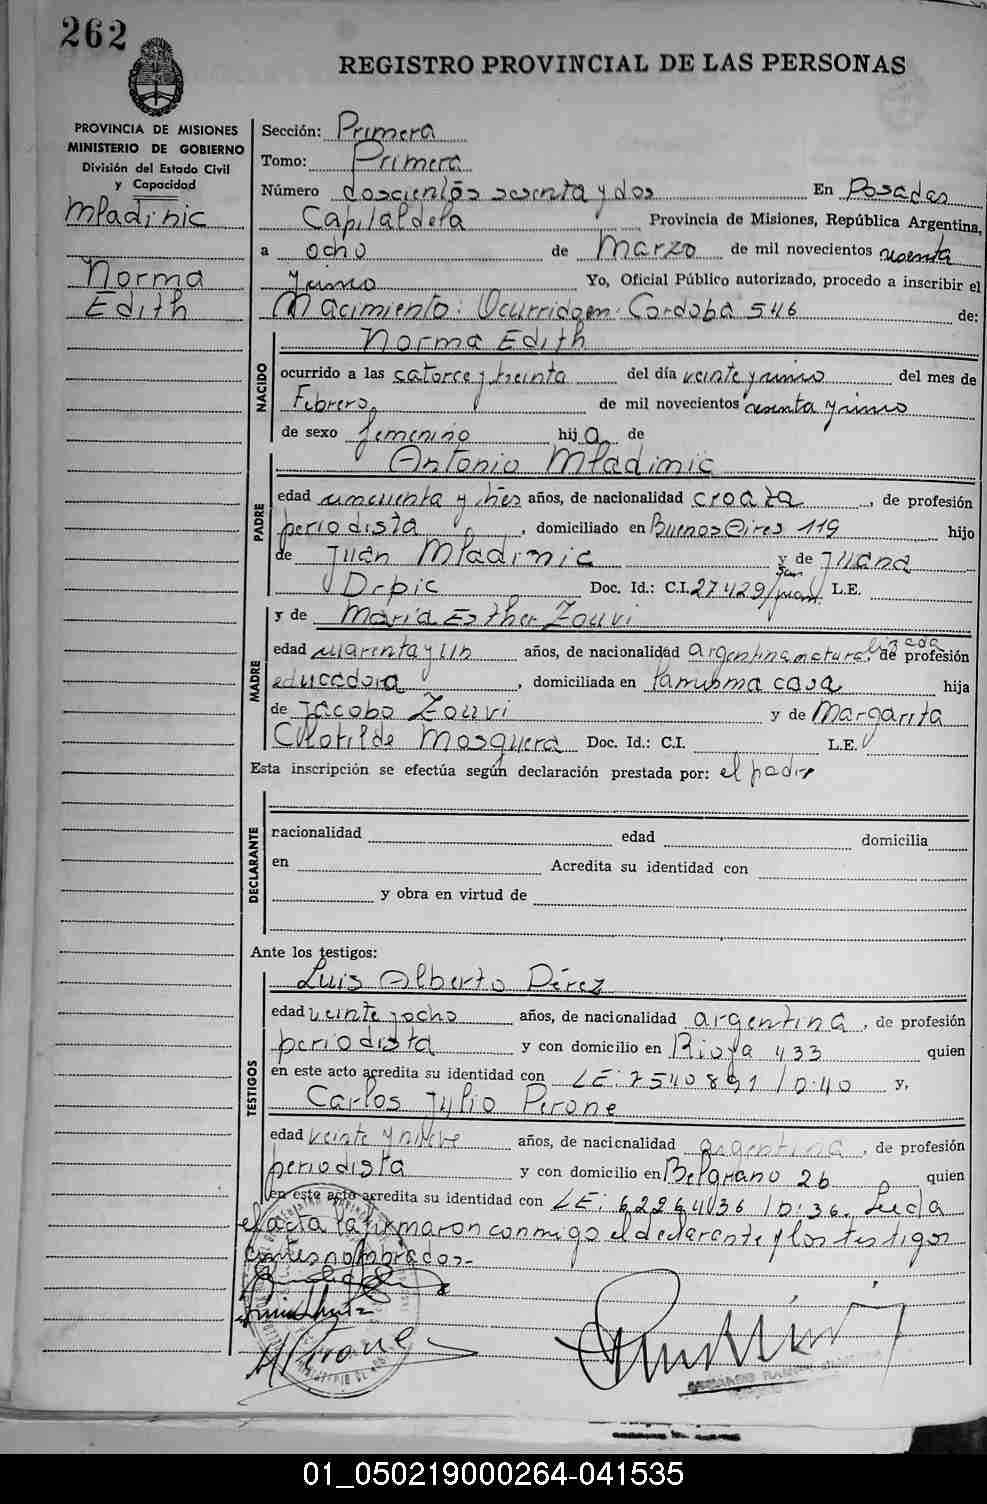 262
REGISTRO PROVINCIAL DE LAS PERSONAS
PROVINCIA DE MISIONES
MINISTERIO DE GOBIERNO
División del Estado Civil
y Capacidad
Mladinic
Norma
Edith
Sección: Primera
Tomo: Primera
Número doscientos sesenta y dos En Posadas
Capital de la Provincia de Misiones, República Argentina,
a ocho de Marzo de mil novecientos sesenta
y uno Yo, Oficial Público autorizado, procedo a inscribir el
Nacimiento: Ocurrido en: Cordoba 546 de:
NACIDO
Norma Edith
ocurrido a las catorce y treinta del día veinte y uno del mes de
Febrero, de mil novecientos sesenta y uno
de sexo femenino hija de
PADRE
Antonio Mladinic
edad cincuenta y tres años, de nacionalidad croata, de profesión
periodista, domiciliado en Buenos Aires 119 hijo
de Juan Mladinic y de Juana
Drpic Doc. Id.: C.I. 27429/ L.E.
y de María Esther Zouvi
MADRE
edad cuarenta y un años, de nacionalidad argentina naturalizada, de profesión
educadora, domiciliada en la misma casa hija
de Jacobo Zouvi y de Margarita
Clotilde Mosquera Doc. Id.: C.I. L.E.
Esta inscripción se efectúa según declaración prestada por: el padre
DECLARANTE
nacionalidad edad domicilia
en Acredita su identidad con
y obra en virtud de
Ante los testigos:
TESTIGOS
Luis Alberto Pérez
edad veinte y ocho años, de nacionalidad argentina, de profesión
periodista y con domicilio en Rioja 433 quien
en este acto acredita su identidad con LE: 7540891 / D:40 y,
Carlos Julio Perone
edad veinte y nueve años, de nacionalidad argentina, de profesión
periodista y con domicilio en Belgrano 26 quien
en este acto acredita su identidad con LE: 6226436 / D:36. Leida
el acta la firmaron conmigo el declarante y los testigos
antes nombrados.-
01_050219000264-041535